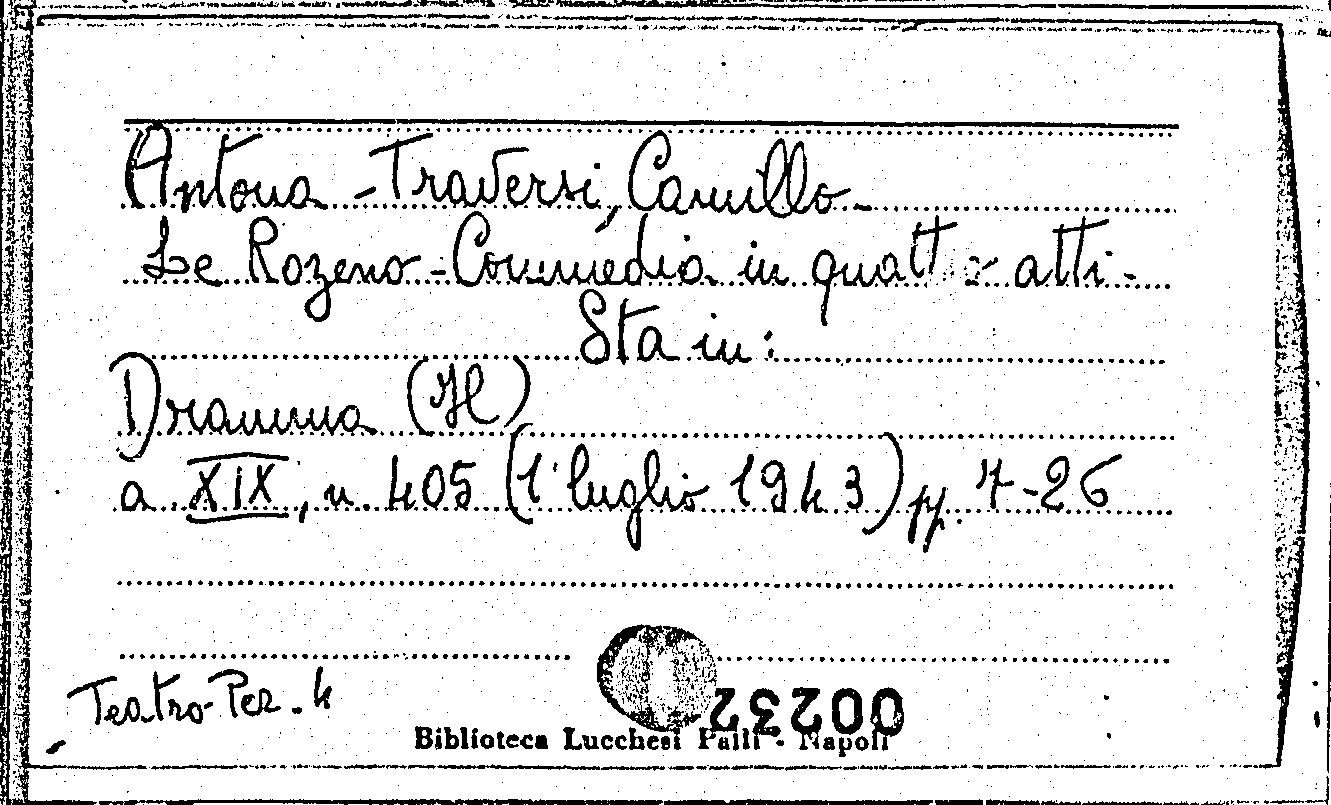 Antona-Traversi, Camillo-
Le Rozeno-Commedia in quattro atti-
Sta in:
Dramma (Il)
a. XIX, n. 405 (1° luglio 1943) pp. 7-26
Teatro-Per. 4
00232
Biblioteca Lucchesi Palli - Napoli